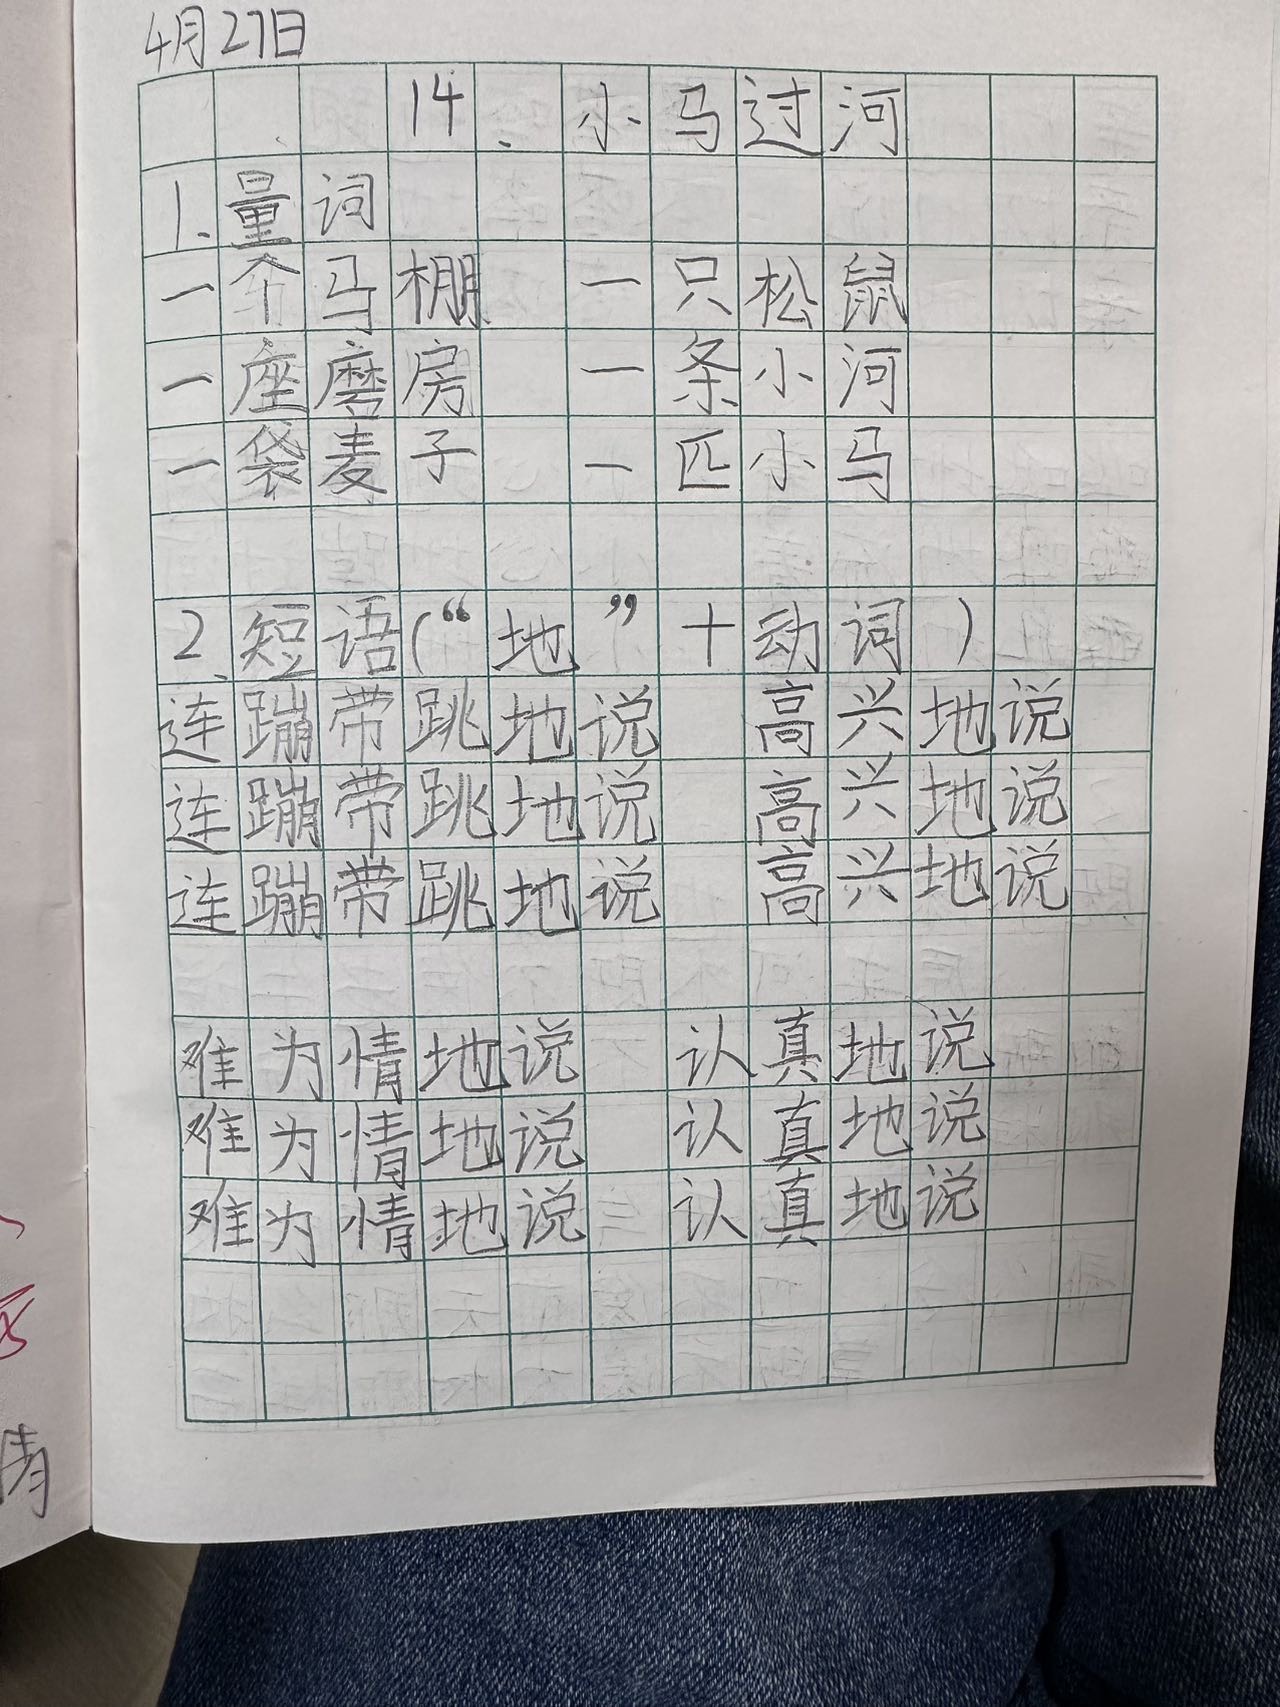 4月27日
14、小马过河
1、量词
一个马棚 一只松鼠
一座磨房 一条小河
一袋麦子 一匹小马
2、短语(“地”+动词)
连蹦带跳地说 高兴地说
连蹦带跳地说 高兴地说
连蹦带跳地说 高兴地说
难为情地说 认真地说
难为情地说 认真地说
难为情地说 认真地说